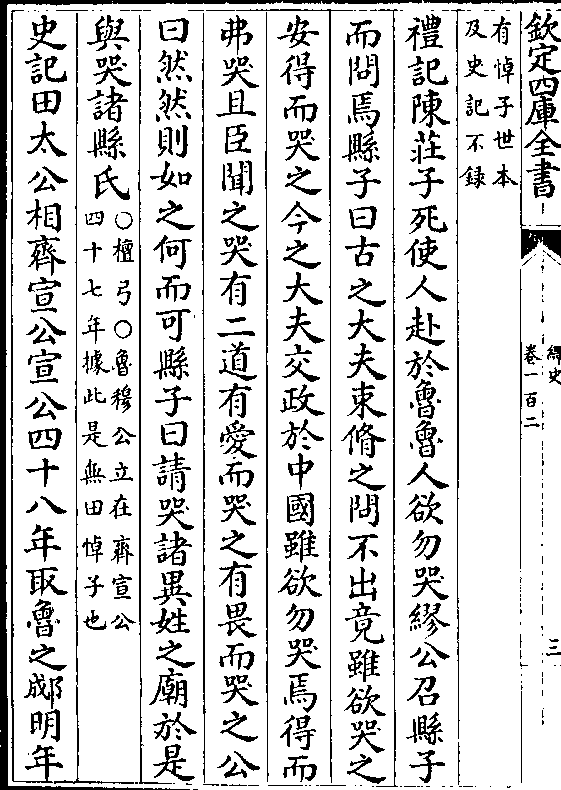 欽定四庫全書
繹史
卷一百二
三
有悼子世本
及史記不録
禮記陳莊子死使人赴於魯魯人欲勿哭繆公召縣子
而問焉縣子曰古之大夫束脩之問不出竟雖欲哭之
安得而哭之今之大夫交政於中國雖欲勿哭焉得而
弗哭且臣聞之哭有二道有愛而哭之有畏而哭之公
曰然然則如之何而可縣子曰請哭諸異姓之廟於是
與哭諸縣氏
○檀弓○魯穆公立在齊宣公
四十七年據此是無田悼子也
史記田太公相齊宣公宣公四十八年取魯之郕明年